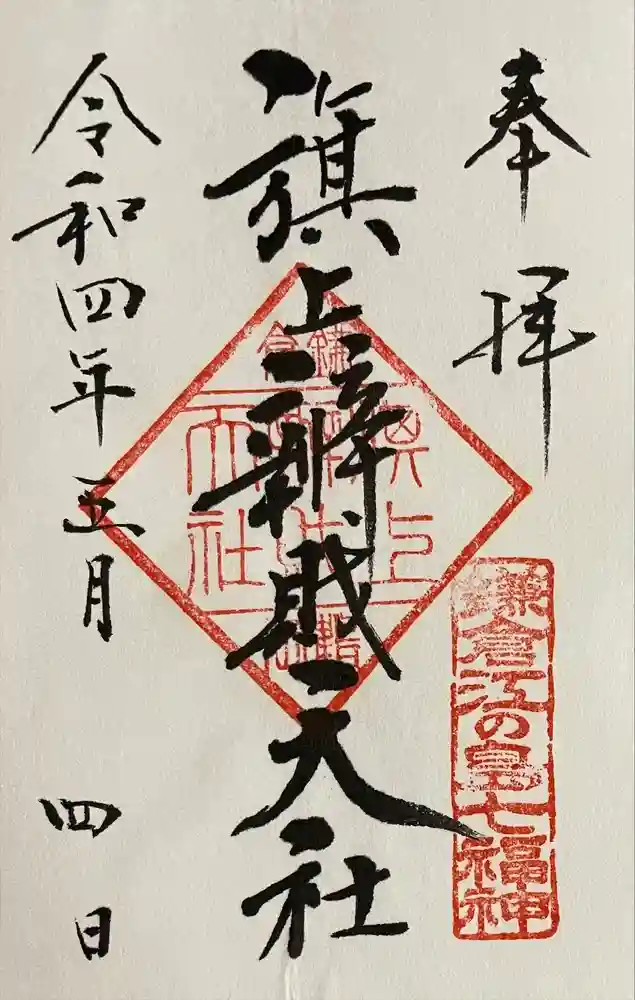 奉拝
旗上辨財天社
令和四年五月四日
鎌倉
旗上
大社
鎌倉江の島七福神